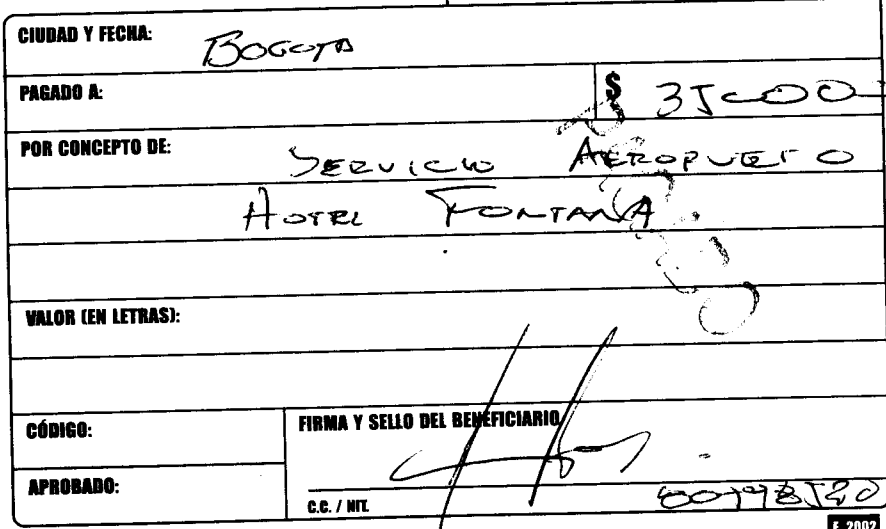 CIUDAD Y FECHA: BOGOTA
PAGADO A: $ 35000
POR CONCEPTO DE: SERVICIO AEROPUERTO
HOTEL FONTANA
VALOR (EN LETRAS):
CÓDIGO: FIRMA Y SELLO DEL BENEFICIARIO
APROBADO:
C.C. / NIT.
F. 2002